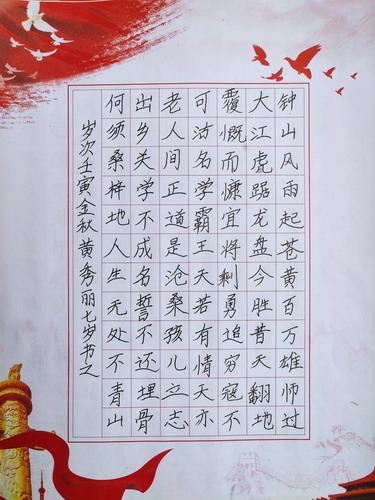 钟山风雨起苍黄百万雄师过
大江虎踞龙盘今胜昔天翻地
覆慨而慷宜将剩勇追穷寇不
可沽名学霸王天若有情天亦
老人间正道是沧桑孩儿立志
出乡关学不成名誓不还埋骨
何须桑梓地人生无处不青山
岁次壬寅金秋黄秀丽七岁书之